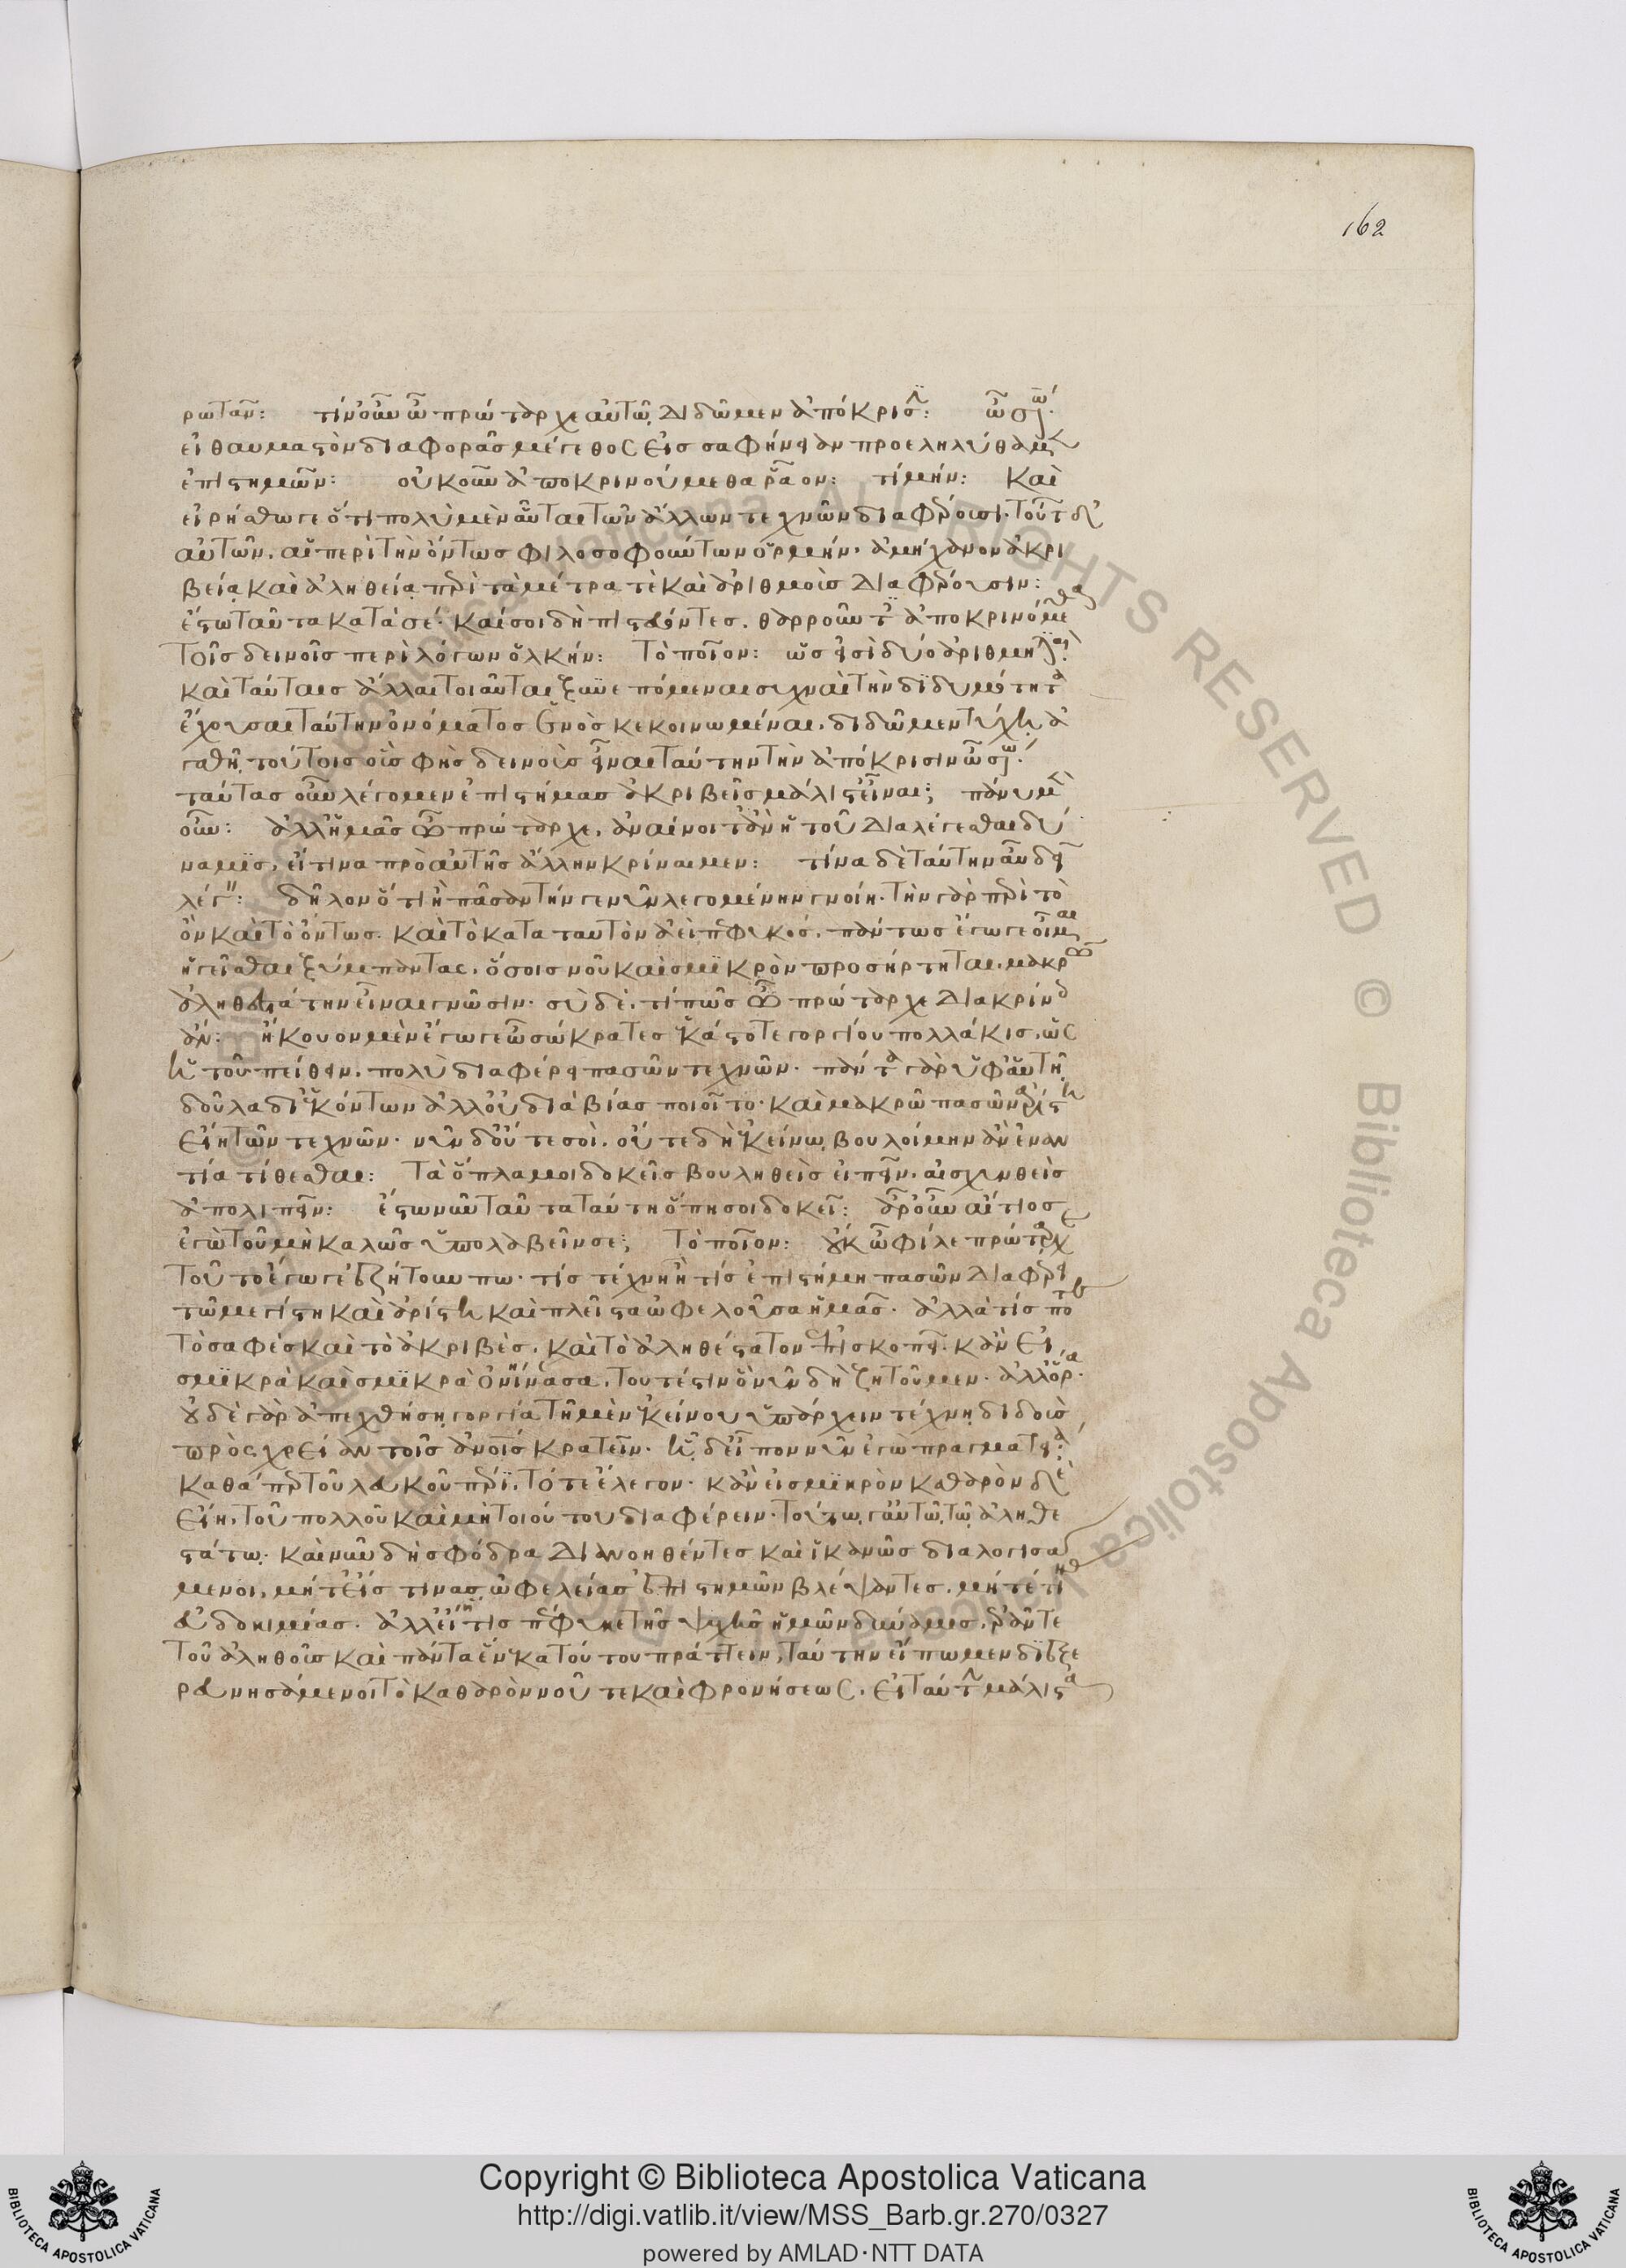 162
ρωτᾶν: τίν' οὖν ὦ πρώταρχε αὐτῷ διδῶμεν ἀπόκρισιν: ὦ σώ.
εἰς θαυμαστὸν διαφορᾶς μέγεθος εἰς σαφήνειαν προεληλύθαμεν
ἐπιστημῶν: οὐκοῦν ἀποκρινούμεθα ῥᾷον: τί μήν: καὶ
εἰρήσθω γε ὅτι πολὺ μὲν αὗται τῶν ἄλλων τεχνῶν διαφέρουσι. τούτων δ'
αὐτῶν, αἱ περὶ τὴν ὄντως φιλοσοφούντων ὁρμήν, ἀμήχανον ἀκρι
βείᾳ καὶ ἀληθείᾳ περὶ τὰ μέτρα τε καὶ ἀριθμοὺς διαφέρουσιν:
ἔστω ταῦτα κατὰ σέ. καὶ σοὶ δὴ πιστεύοντες, θαρροῦντες ἀποκρινόμεθα
τοῖς δεινοῖς περὶ λόγων ὁλκήν: τὸ ποῖον: ὡς εἰσὶ δύο ἀριθμητικαὶ
καὶ ταύταις ἄλλαι τοιαῦται ξυνεπόμεναι συχναὶ τὴν διδυμότητα
ἔχουσαι ταύτην ὀνόματος ἑνὸς κεκοινωμέναι. διδῶμεν τύχῃ ἀ
γαθῇ τούτοις οὓς φῂς δεινοὺς εἶναι ταύτην τὴν ἀπόκρισιν ὦ σώ.
ταύτας οὖν λέγομεν ἐπιστήμας ἀκριβεῖς μάλιστ' εἶναι; πάνυ μὲν
οὖν: ἀλλ' ἡμᾶς ὦ πρώταρχε, ἀναίνοιτ' ἂν ἡ τοῦ διαλέγεσθαι δύ
ναμις, εἴ τινα πρὸ αὐτῆς ἄλλην κρίναιμεν: τίνα δὲ ταύτην αὖ δεῖ
λέγειν: δῆλον ὅτι ἢ πᾶς ἂν τήν γε νῦν λεγομένην γνοίη. τὴν γὰρ περὶ τὸ
ὂν καὶ τὸ ὄντως. καὶ τὸ κατὰ ταυτὸν ἀεὶ πεφυκός. πάντως ἔγωγε οἶμαι
ἡγεῖσθαι ξύμπαντας, ὅσοις νοῦ καὶ σμικρὸν προσήρτηται, μακρῷ
ἀληθεστάτην εἶναι γνῶσιν. σὺ δὲ, τί πῶς ὦ πρώταρχε διακρίνοις
ἄν: ἤκουον μὲν ἔγωγε ὦ σώκρατες ἑκάστοτε γοργίου πολλάκις, ὡς
ἡ τοῦ πείθειν, πολὺ διαφέρει πασῶν τεχνῶν. πάντα γὰρ ὑφ' αὑτῇ
δοῦλα δι' ἑκόντων ἀλλ' οὐ διὰ βίας ποιοῖτο. καὶ μακρῷ πασῶν ἀρίστη
εἴη τῶν τεχνῶν. νῦν δ' οὔτε σοὶ, οὔτε δὴ 'κείνῳ βουλοίμην ἂν ἐναν
τία τίθεσθαι: τὰ ὅπλα μοι δοκεῖς βουληθεὶς εἰπεῖν, αἰσχυνθεὶς
ἀπολιπεῖν: ἔστω νῦν ταῦτα ταύτῃ ὅπῃ σοι δοκεῖ: ἆρ' οὖν αἴτιος
ἐγὼ τοῦ μὴ καλῶς ὑπολαβεῖν σε; τὸ ποῖον: οὐκ ὦ φίλε πρώταρχε
τοῦτο ἔγωγε ἐζήτουν πω. τίς τέχνη ἢ τίς ἐπιστήμη πασῶν διαφέρει
τῷ μεγίστη καὶ ἀρίστη καὶ πλεῖστα ὠφελοῦσα ἡμᾶς. ἀλλὰ τίς ποτε
τὸ σαφὲς καὶ τὸ ἀκριβὲς, καὶ τὸ ἀληθέστατον ἐπισκοπεῖ. κἂν εἰ
σμικρὰ καὶ σμικρὰ ὀνινᾶσα, τοῦτ' ἔστιν ὃ νῦν δὴ ζητοῦμεν. ἀλλ' ὅρα.
οὐδὲ γὰρ ἀπεχθήσῃ γοργίᾳ τῇ μὲν 'κείνου ὑπάρχειν τέχνῃ διδοὺς
πρὸς χρείαν τοῖς ἀνοῖς κρατεῖν. ᾗ δ' εἶπον νῦν ἐγὼ πραγματείᾳ.
καθάπερ τοῦ λευκοῦ πέρι, τότε ἔλεγον. κἂν εἰ σμικρὸν καθαρὸν δὲ
εἴη, τοῦ πολλοῦ καὶ μὴ τοιούτου διαφέρειν. τούτῳ γ' αὐτῷ τῷ ἀληθε
στάτῳ. καὶ νῦν δὴ σφόδρα διανοηθέντες καὶ ἱκανῶς διαλογισά
μενοι, μήτ' εἴς τινας ὠφελείας ἐπιστημῶν βλέψαντες, μήτέ τινας
εὐδοκιμίας. ἀλλ' εἴ τις πέφυκε τῆς ψυχῆς ἡμῶν δύναμις, ἐρᾶν τε
τοῦ ἀληθοῦς καὶ πάντα ἕνεκα τούτου πράττειν, ταύτην εἴπωμεν διεξε
ρευνησάμενοι τὸ καθαρὸν νοῦ τε καὶ φρονήσεως. εἰ ταύτην μάλιστα
Copyright © Biblioteca Apostolica Vaticana
http://digi.vatlib.it/view/MSS_Barb.gr.270/0327
powered by AMLAD·NTT DATA
BIBLIOTECA APOSTOLICA VATICANA
BIBLIOTECA APOSTOLICA VATICANA